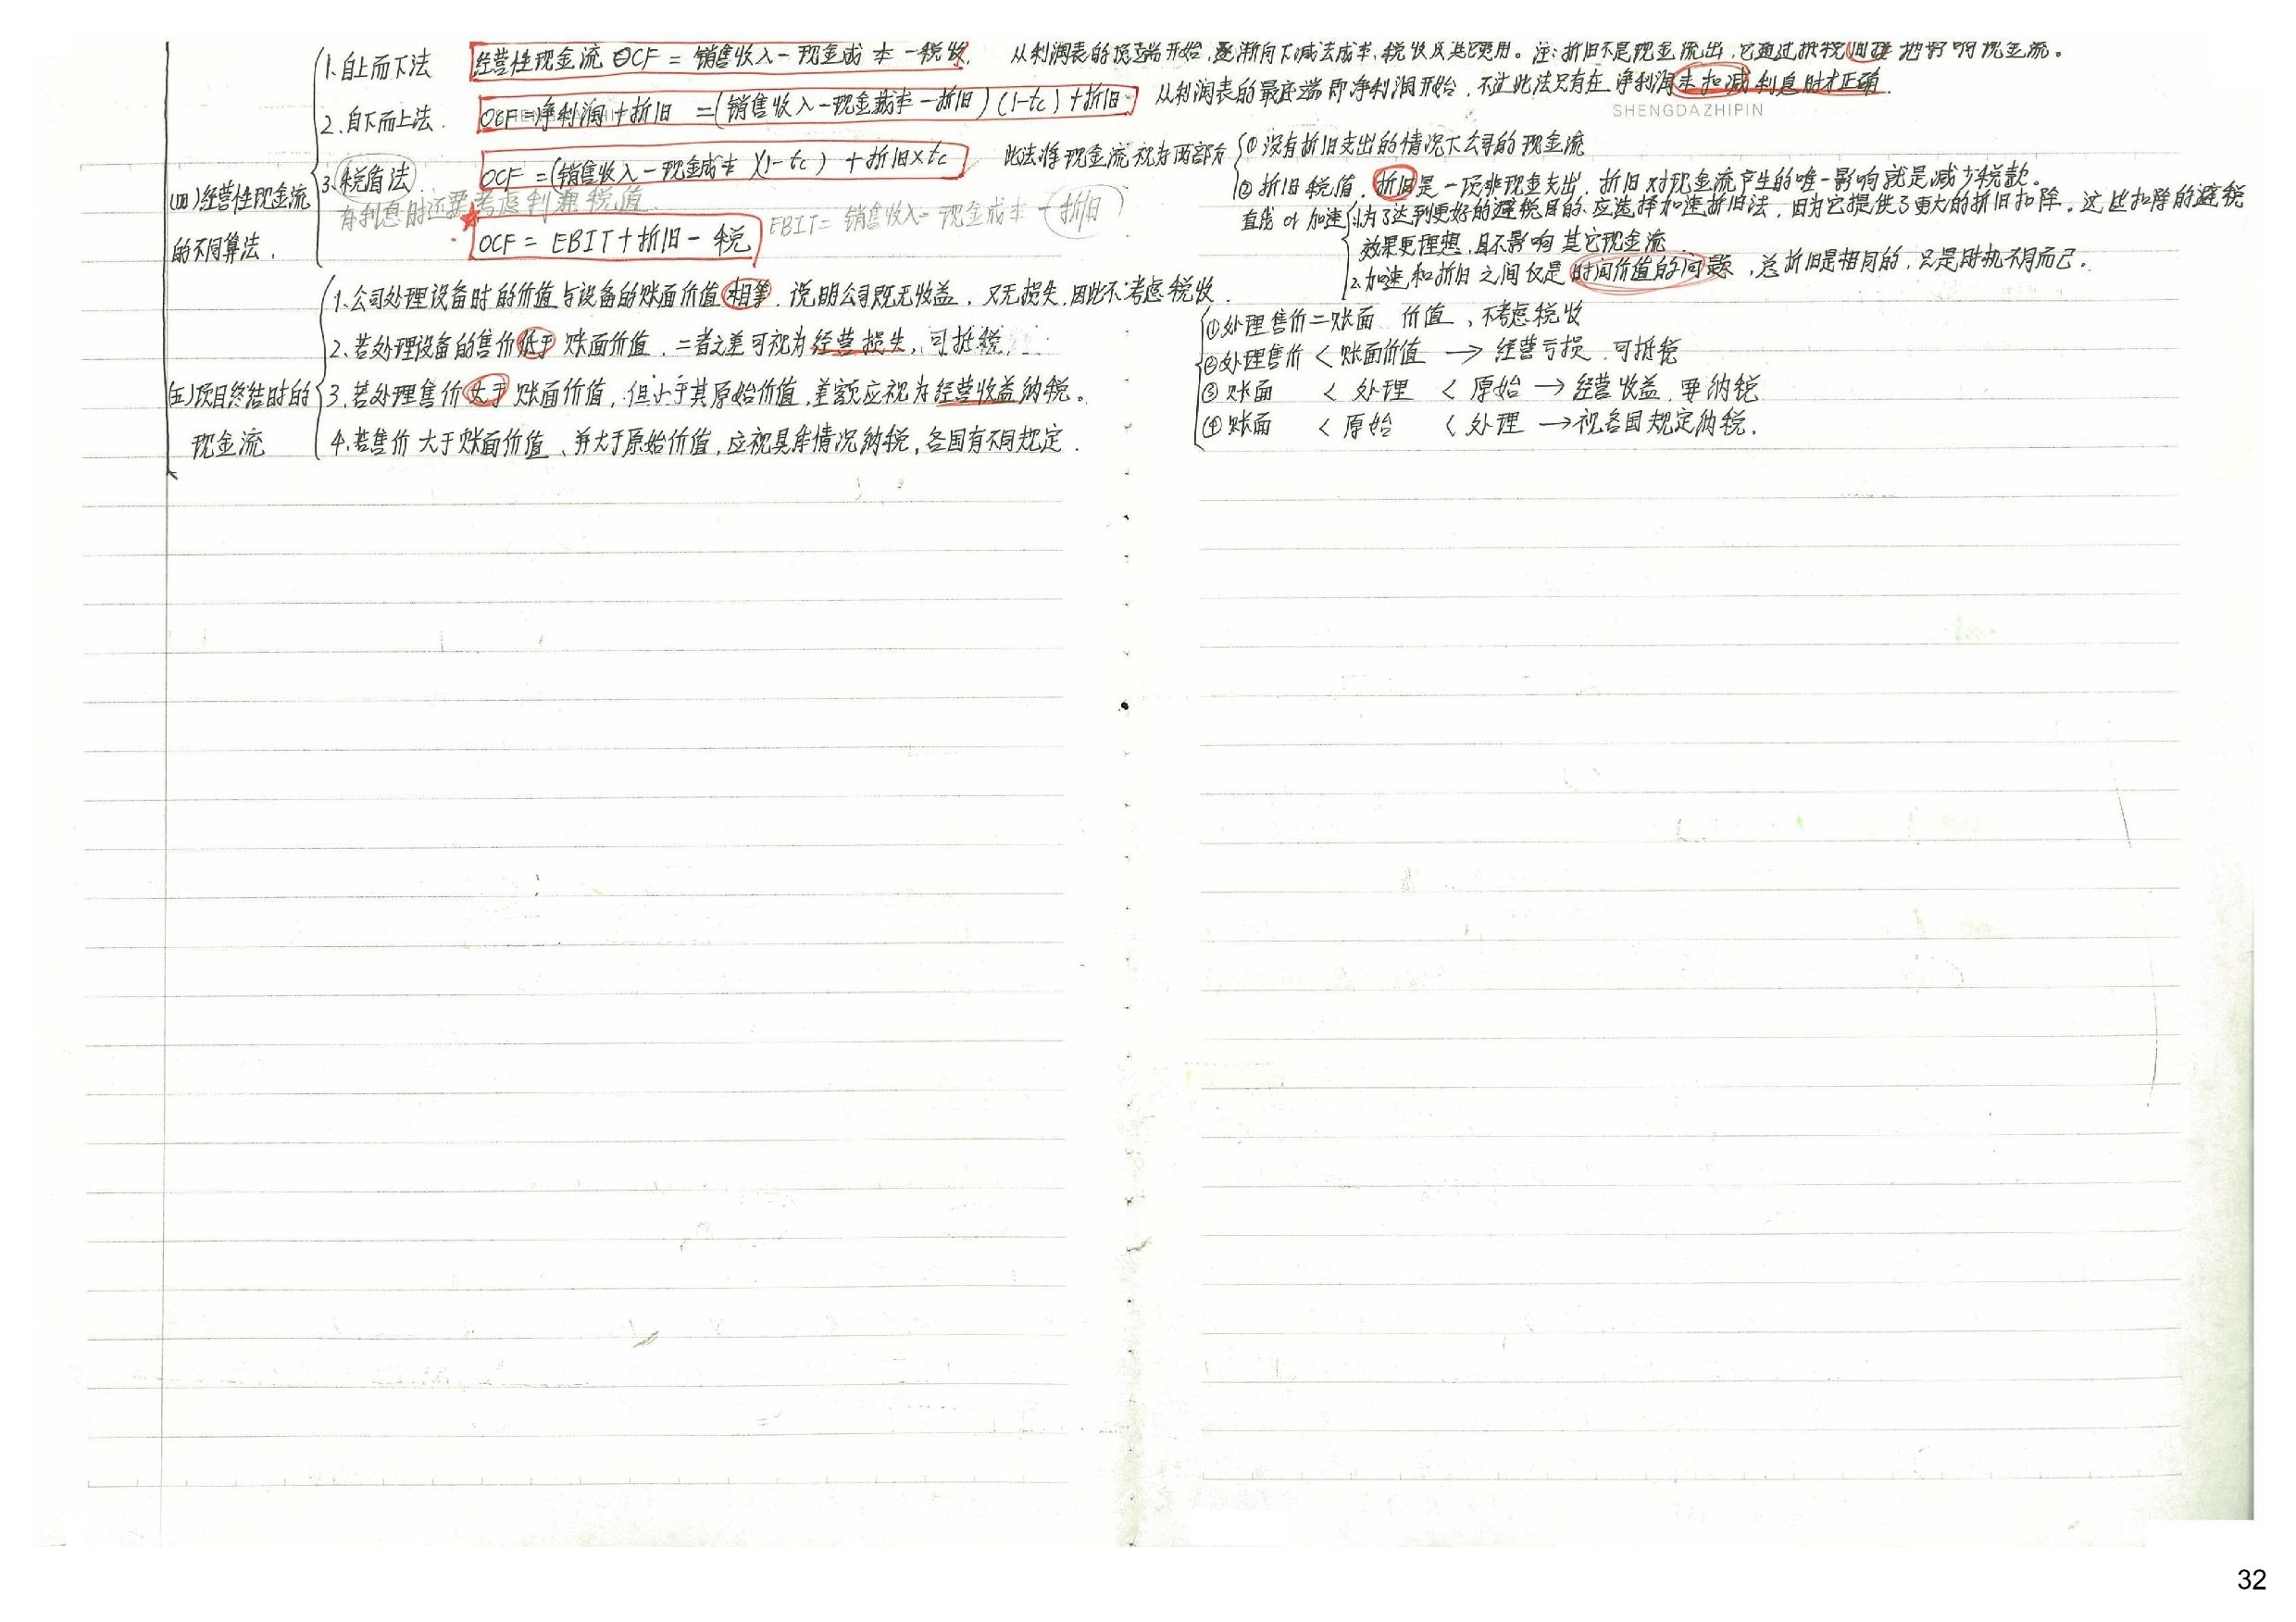 1.自上而下法 经营性现金流 OCF = 销售收入-现金成本-税收. 从利润表的顶端开始,逐渐向下减去成本,税收及其它费用。注:折旧不是现金流出,它通过抵税间接地影响现金流。
2.自下而上法. OCF=净利润+折旧 =(销售收入-现金成本-折旧)(1-tc)+折旧 从利润表的最底端即净利润开始,不过此法只有在净利润未扣减利息时才正确.
SHENGDAZHIPIN
(四)经营性现金流
的不同算法.
3.税盾法. OCF =(销售收入-现金成本)(1-tc)+折旧×tc 此法将现金流视为两部分
①没有折旧支出的情况下公司的现金流
②折旧税值.折旧是一项非现金支出.折旧对现金流产生的唯一影响就是减少税款。
有利息时还要考虑利息税值.
OCF = EBIT+折旧-税 EBIT=销售收入-现金成本-折旧
直线 or 加速
1.为了达到更好的避税目的,应选择加速折旧法,因为它提供了更大的折旧扣除,这些扣除的避税
效果更理想,且不影响其它现金流.
2.加速和折旧之间仅是时间价值的问题,总折旧是相同的,只是时机不同而已.
(五)项目终结时的
现金流
1.公司处理设备时的价值与设备的账面价值相等,说明公司既无收益,又无损失,因此不考虑税收.
2.若处理设备的售价低于账面价值,二者之差可视为经营损失,可抵税.
3.若处理售价大于账面价值,但小于其原始价值,差额应视为经营收益纳税。
4.若售价大于账面价值、并大于原始价值,应视具体情况纳税,各国有不同规定.
①处理售价=账面 价值、不考虑税收
②处理售价 < 账面价值 → 经营亏损.可抵税
③账面 < 处理 < 原始 → 经营收益.要纳税
④账面 < 原始 < 处理 → 视各国规定纳税.
32